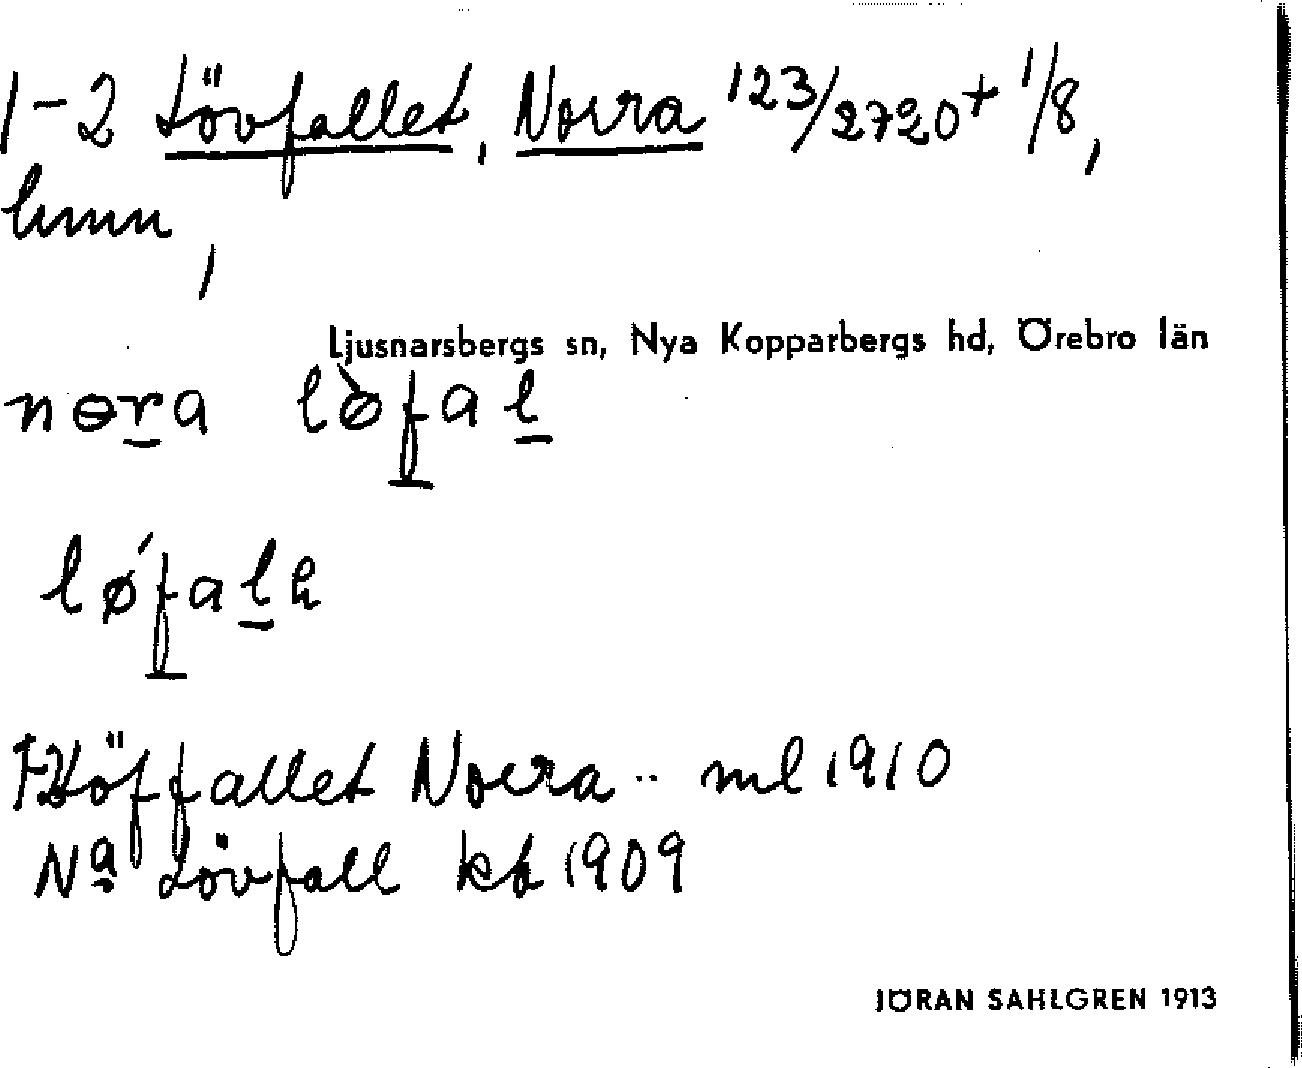 1-2 Lövfallet, Norra 123/2720 + 1/8,
hmn,
Ljusnarsbergs sn, Nya Kopparbergs hd, Örebro län
nɵra lø̀fal
løfalh
Löffallet Norra ml 1910
Na Lövfall kb 1909
JÖRAN SAHLGREN 1913